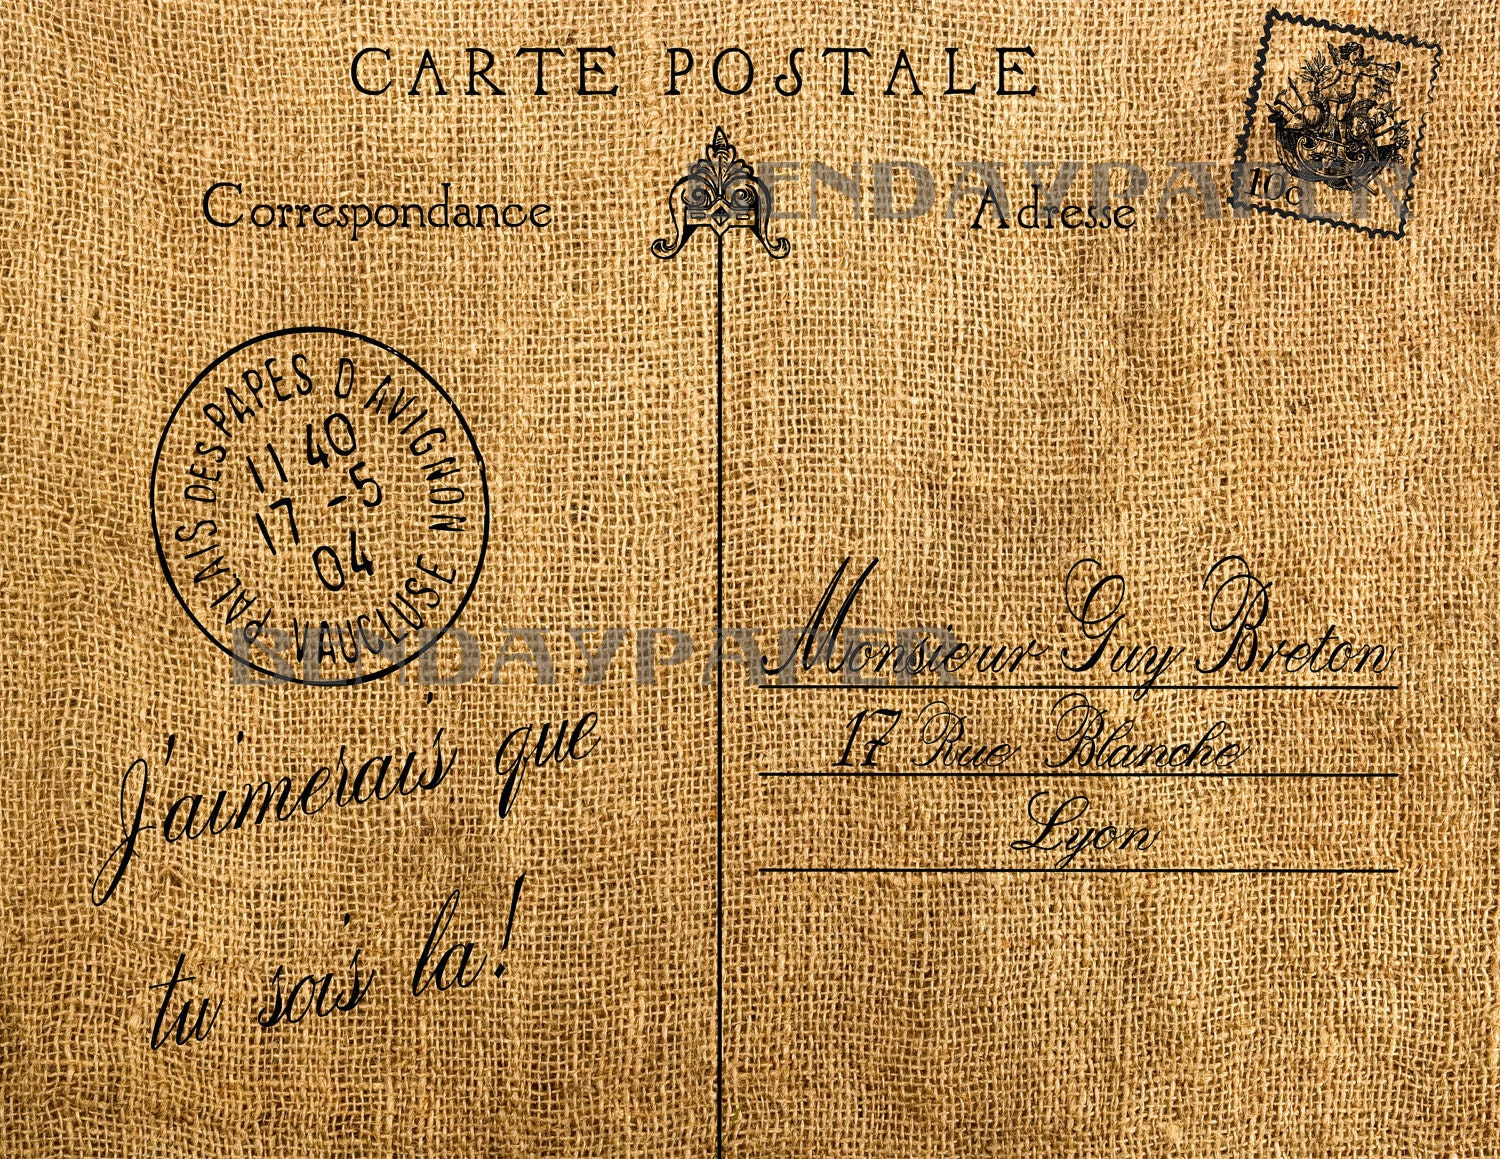 CARTE POSTALE
10c
Correspondance
Adresse
BENDAYPAPER
PALAIS DES PAPES D'AVIGNON
11 40
17 -5
04
VAUCLUSE
BENDAYPAPER
J'aimerais que
tu sois la!
Monsieur Guy Breton
17 Rue Blanche
Lyon